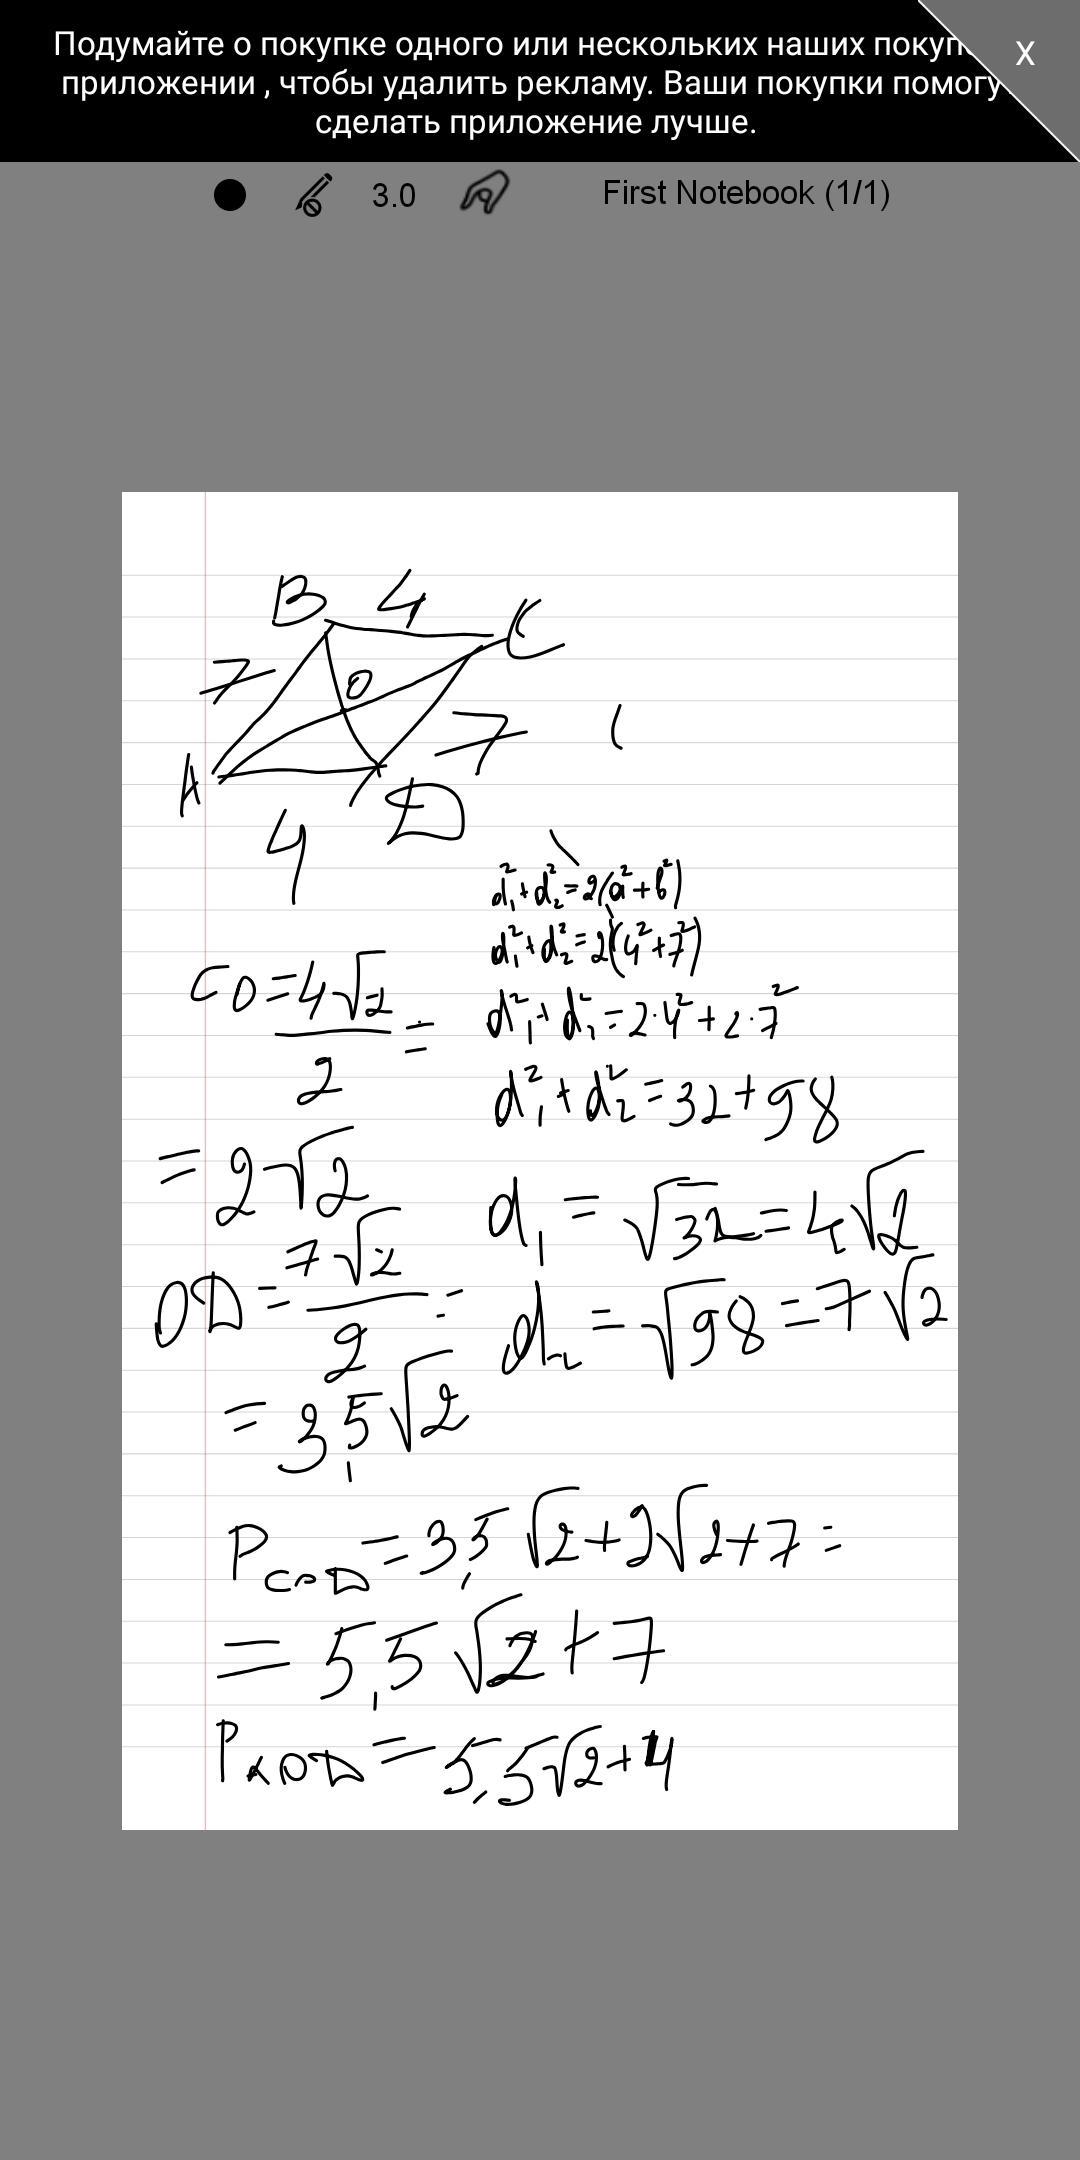 Подумайте о покупке одного или нескольких наших
приложении , чтобы удалить рекламу. Ваши покупки помогу
сделать приложение лучше.
X
3.0
First Notebook (1/1)
B 4 C
7 O 7 (
A D
4
d₁²+d₂²=2(a²+b²)
d₁²+d₂²=2(4²+7²)
d₁²+d₂²=2·4²+2·7²
d₁²+d₂²=32+98
d₁=√32=4√2
d₂=√98=7√2
CO=4√2/2=
=2√2
OD=7√2/2=
=3,5√2
P COD=3,5√2+2√2+7=
=5,5√2+7
P AOD=5,5√2+4